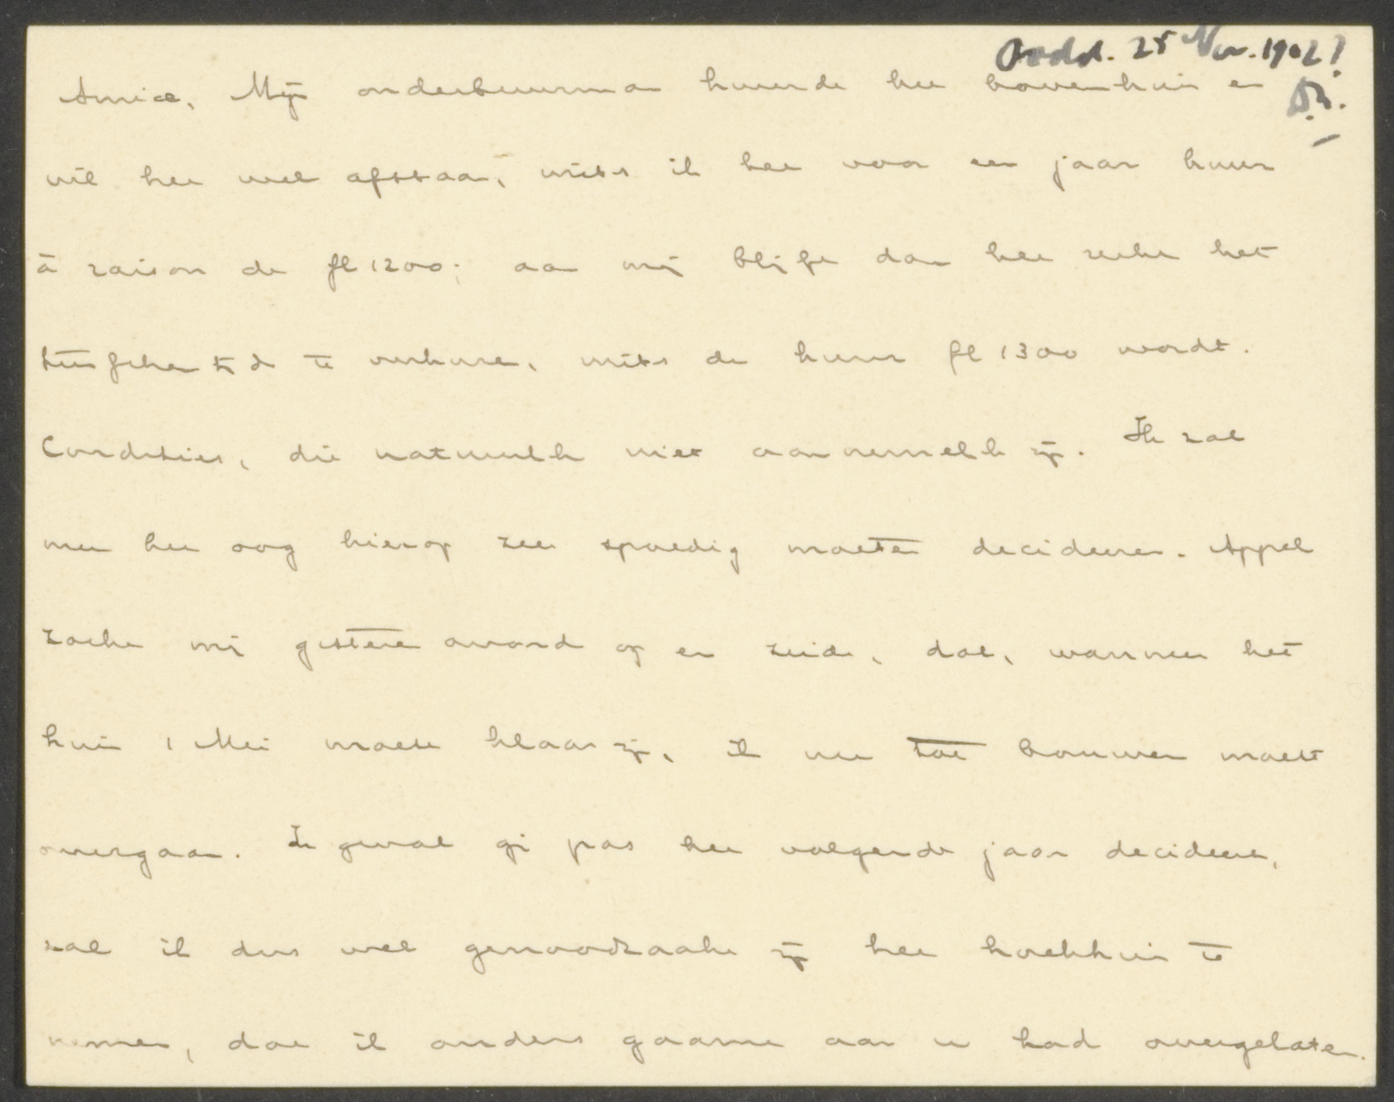 Oodd. 25 Nov. 1902?
Amice, Mijn onderbuurman huurde het bovenhuis en
wil het wel afstaan, mits ik het voor een jaar huur
à raison de fl 1200; aan mij blijft dan het recht het
tusschentijds te verhuren, mits de huur fl 1300 wordt.
Condities, die natuurlk niet aannemelk zijn. Ik zal
met het oog hierop zeer spoedig moeten decideeren. Appel
zocht mij gisteren avond op en zeide, dat, wanneer het
huis 1 Mei moest klaar zijn, ik nu tot bouwen moest
overgaan. In geval gij pas het volgende jaar decideert,
zal ik dus wel genoodzaakt zijn het hoekhuis te
nemen, dat ik anders gaarne aan u had overgelaten.